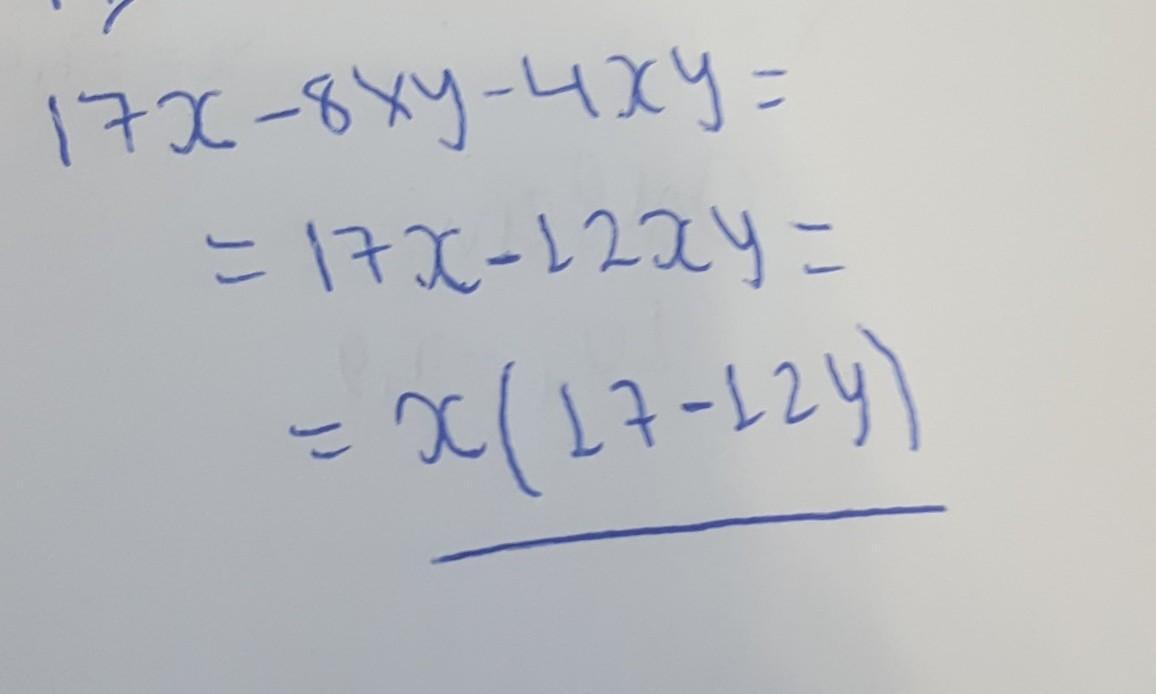 17x-8xy-4xy=
=17x-12xy=
=x(17-12y)